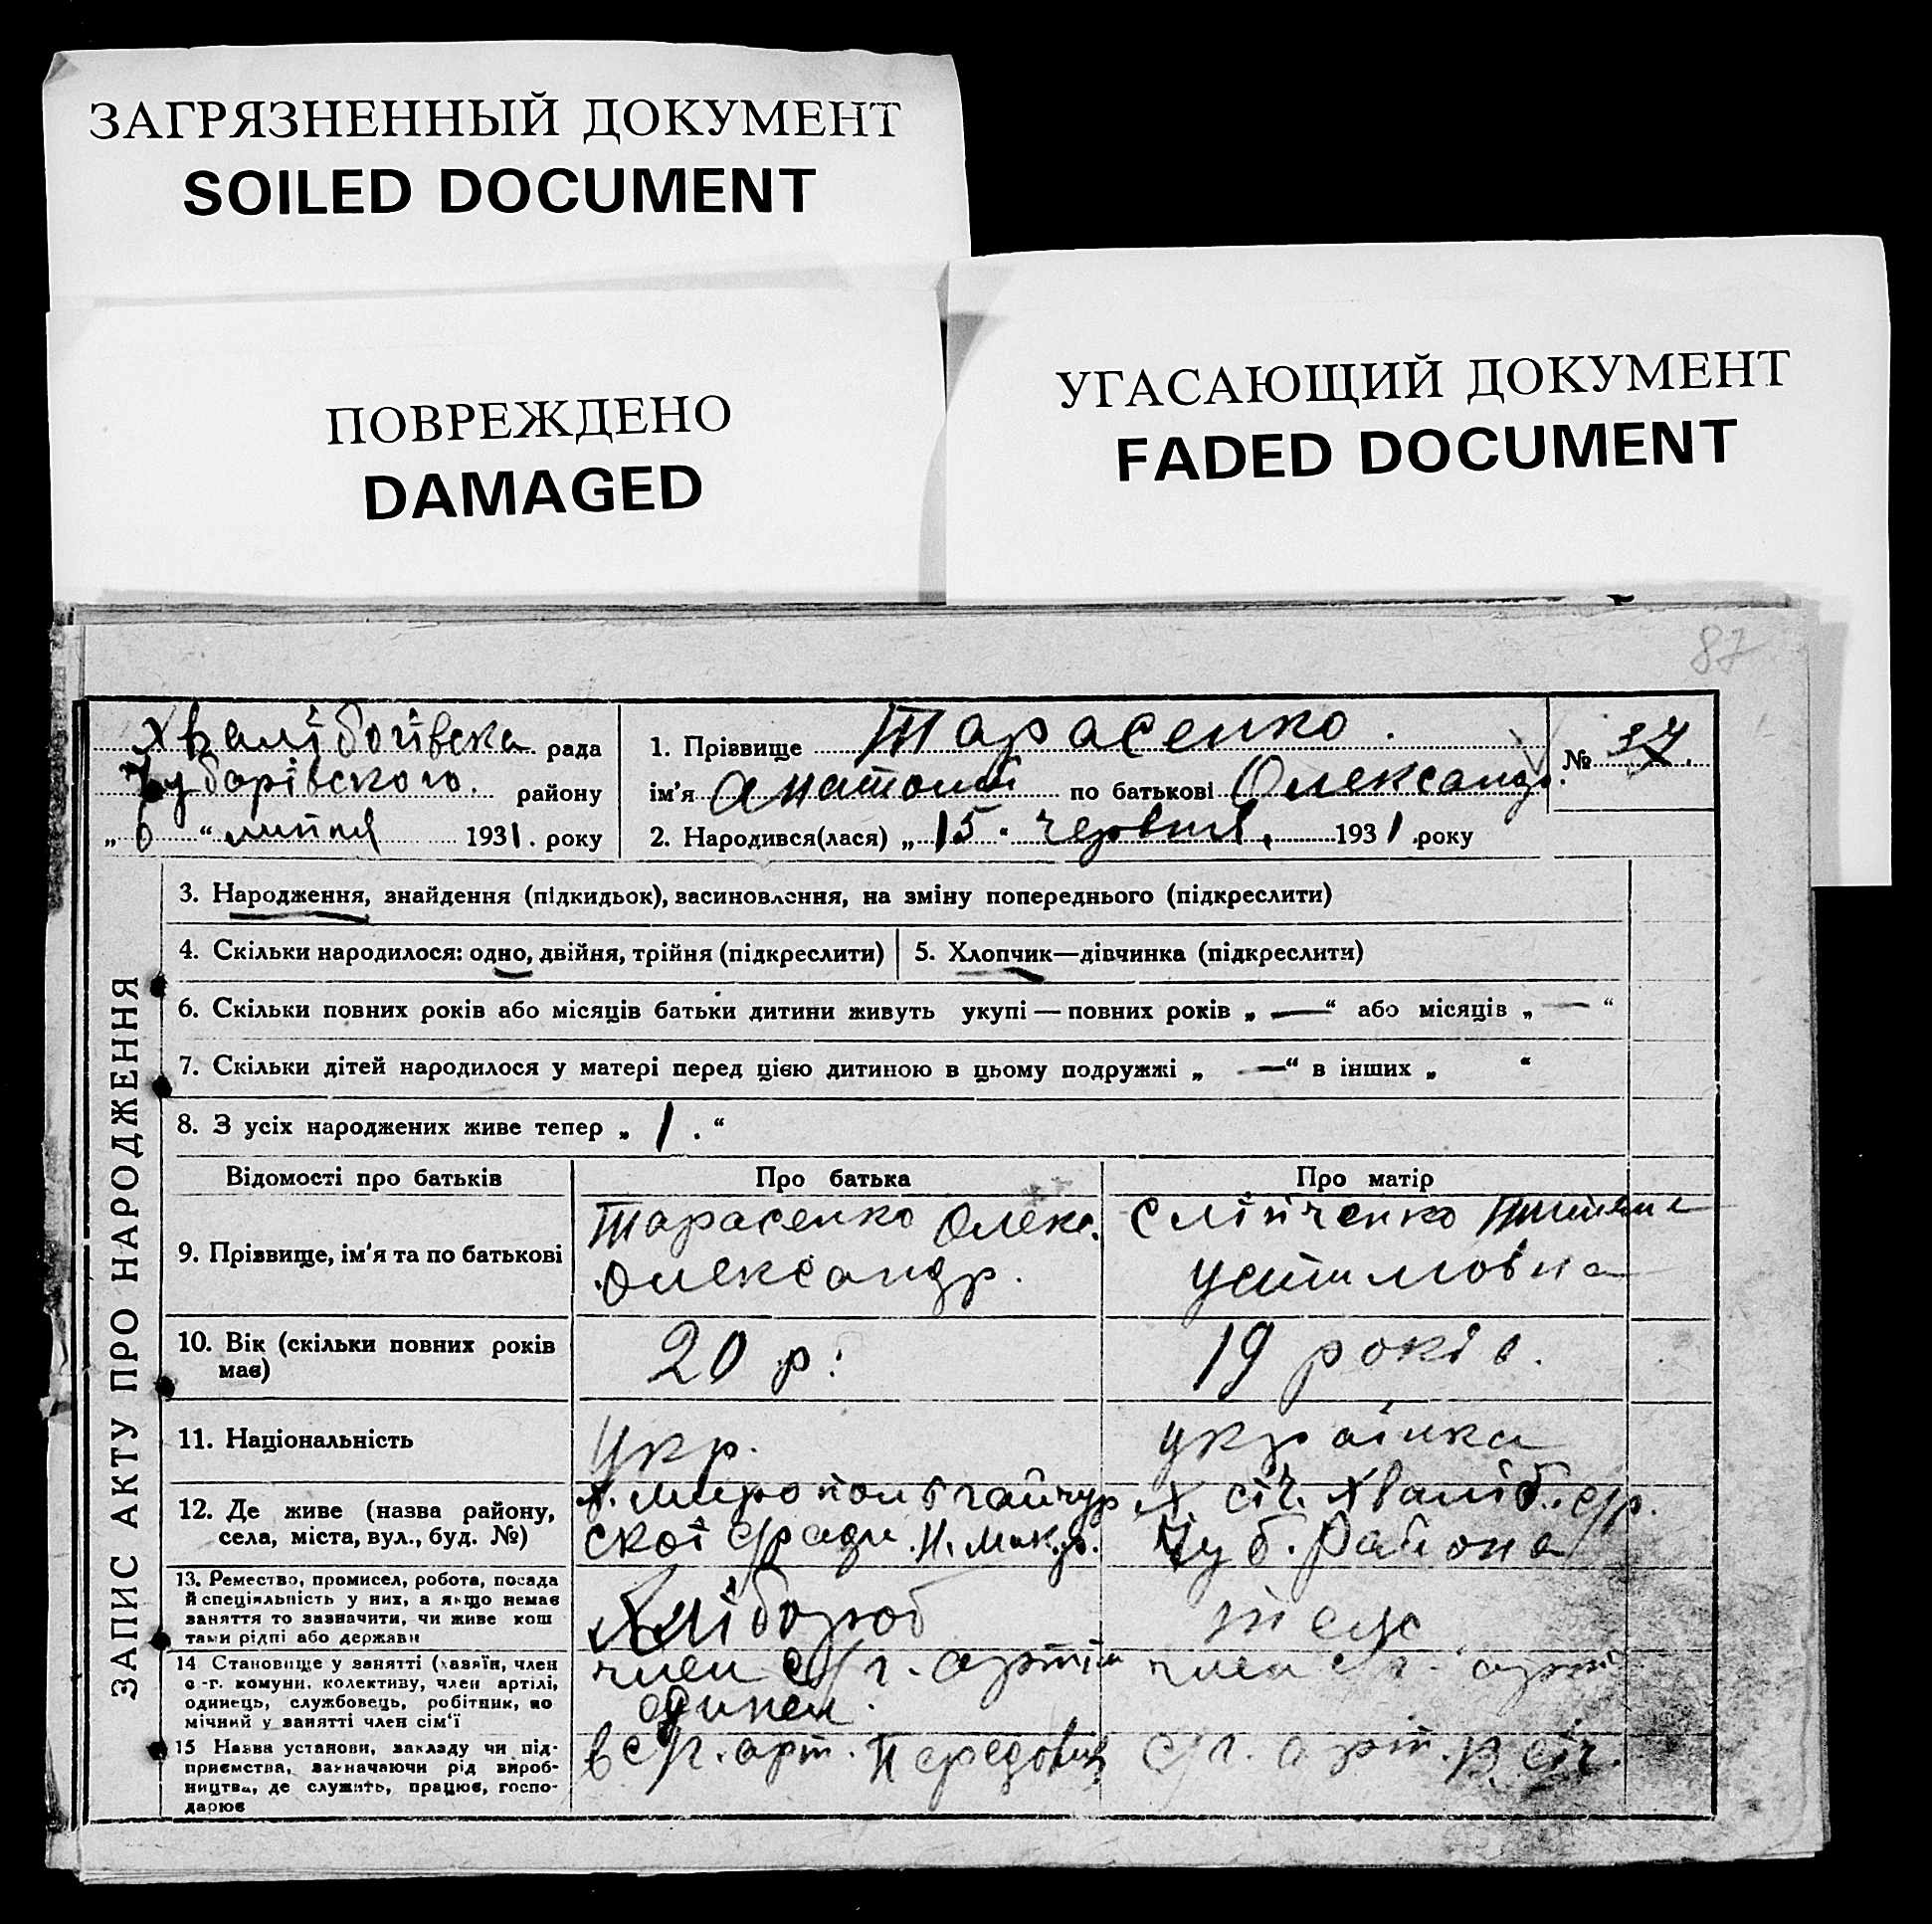 ЗАГРЯЗНЕННЫЙ ДОКУМЕНТ
SOILED DOCUMENT
ПОВРЕЖДЕНО
DAMAGED
УГАСАЮЩИЙ ДОКУМЕНТ
FADED DOCUMENT
87
Хвалібогівска рада
Чубарівского. району
„ 6 “ липня 1931. року
1. Прізвище Тарасенко.
ім'я Анатолій по батькові Олександр.
№ 37.
2. Народився(лася) „ 15 “ червня, 1931 року
3. Народження, знайдення (підкидьок), васиновлення, на зміну попереднього (підкреслити)
4. Скільки народилося: одно, двійня, трійня (підкреслити)
5. Хлопчик—дівчинка (підкреслити)
6. Скільки повних років або місяців батьки дитини живуть укупі — повних років „ — “ або місяців „ — “
7. Скільки дітей народилося у матері перед цією дитиною в цьому подружжі „ — “ в інших „ “
8. З усіх народжених живе тепер „ 1 . “
ЗАПИС АКТУ ПРО НАРОДЖЕННЯ
Відомості про батьків
Про батька
Про матір
9. Прізвище, ім'я та по батькові
Тарасенко Олекс.
Олександр.
Слійченко
Устимовна
10. Вік (скільки повних років
має)
20 р.
19 років.
11. Національність
Укр.
українка
12. Де живе (назва району,
села, міста, вул., буд. №)
х. Мирополь Гайчур
ской с/ради. Н. Мик. р.
х січ. Хваліб. с/р.
Чуб. Района
13. Ремество, промисел, робота, посада
й спеціяльність у них, а якщо немає
заняття то зазначити, чи живе кош
тами рідні або держави
Хлібороб
теж
14 Становище у занятті (хазяїн, член
с.-г. комуни, колективу, член артілі,
одинець, службовець, робітник, по
мічний у занятті член сім'ї
член с/г. артіл
член с/г. арті
15 Назва установи, закладу чи під-
приємства, зазначаючи рід вироб-
ництва, де служить, працює, госпо-
дарює
в с/г. арт. Передовик
с/г. арт. В. січ.